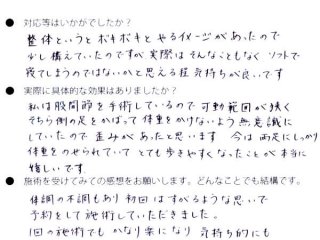 ● 対応等はいかがでしたか?
整体というとボキボキとやるイメージがあったので
少し構えていたのですが実際はそんなこともなくソフトで
寝てしまうのではないかと思える程気持ちが良いです
● 実際に具体的な効果はありましたか?
私は股関節を手術しているので可動範囲が狭く
そちら側の足をかばって体重をかけないよう無意識に
していたので歪みがあったと思います 今は両足にしっかり
体重をのせられていてとても歩きやすくなったことが本当に
嬉しいです
● 施術を受けてみての感想をお願いします。どんなことでも結構です。
体調の不調もあり初回はすがるような思いで
予約をして施術していただきました。
1回の施術でもかなり楽になり気持ち的にも